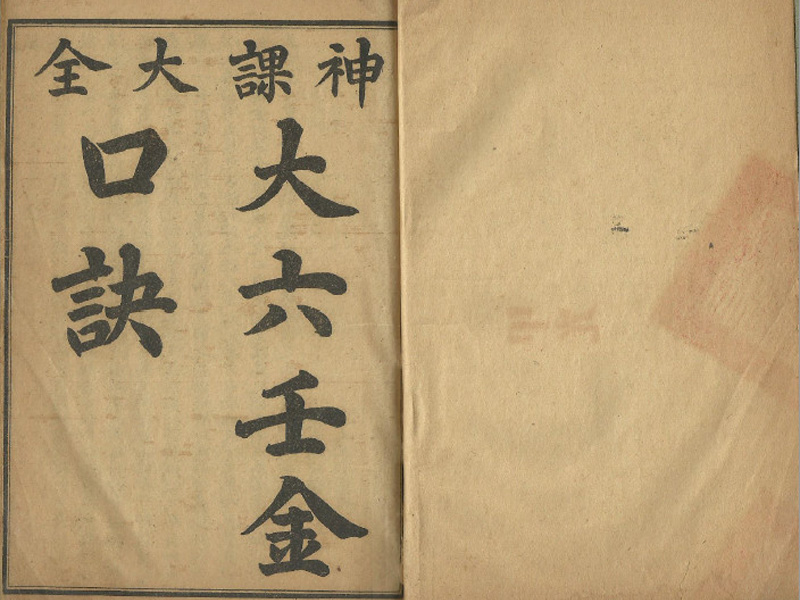 神課大全
大六壬金
口訣